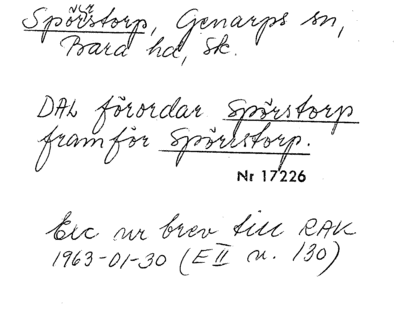 Spörstorp, Genarps sn,
Bara hd, Sk.
DAL förordar Spörstorp
framför Spörrstorp.
Nr 17226
Exc ur brev till RAK
1963-01-30 (E II u. 130)